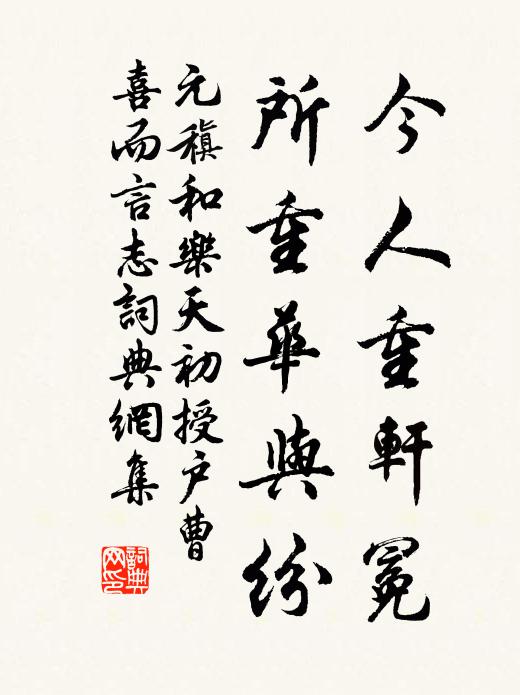 今人重軒冕
所重華與紛
元稹和樂天初授戶曹
喜而言志詞典網集
詞典
网印